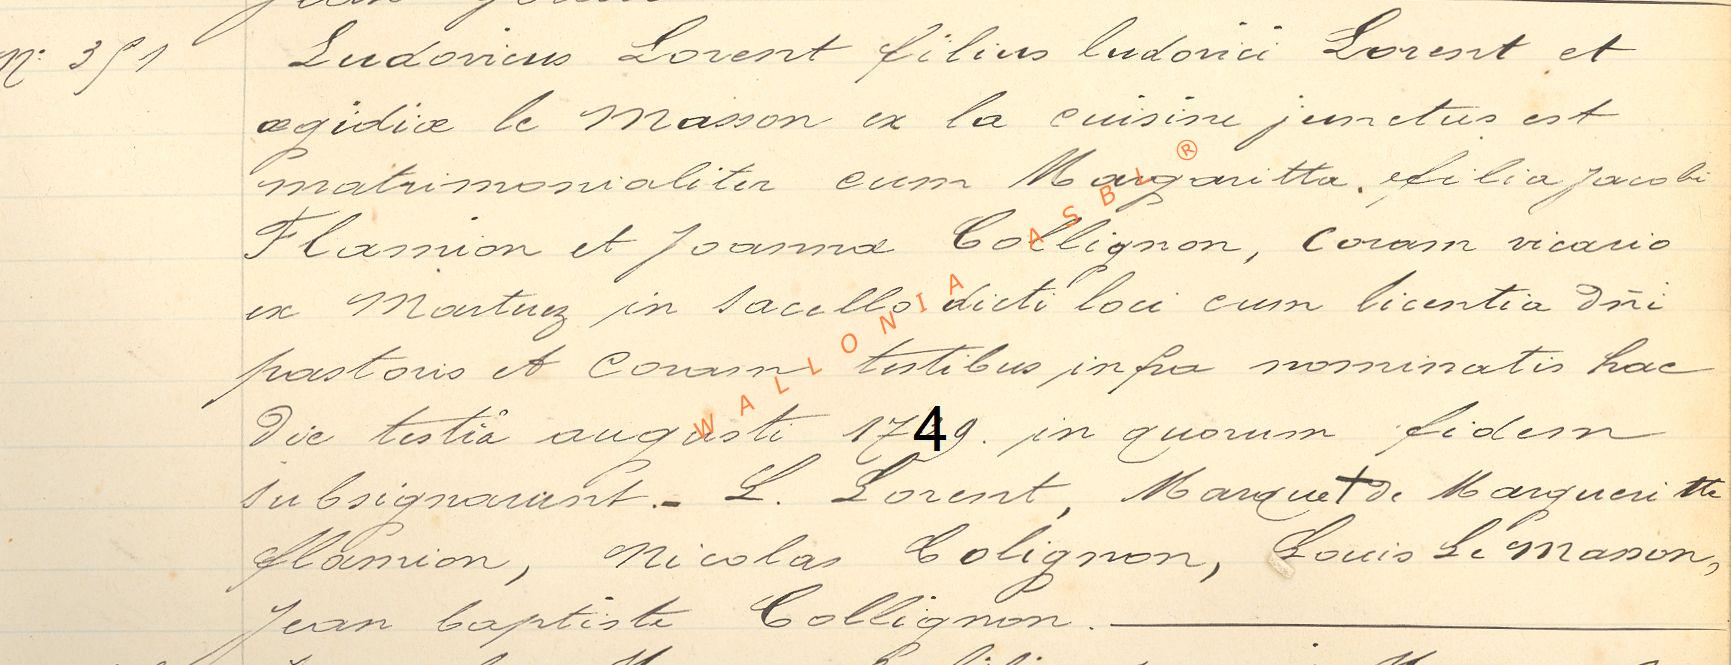 N: 351 Ludovicus Lorent filius ludovici Lorent et
ægidiæ le Masson ex la cuisine junctus est
matrimonialiter cum Margaritta. filia jacobi
Flamion et Joannæ Collignon, coram vicario
ex Martuez in sacello dicti loci cum licentia dñi
pastoris et coram testibus infra nominatis hac
die testiâ augusti 1749. in quorum fidem
subsignarunt.- L. Lorent, Marque + de Margueritte
flamion, Nicolas Colignon, Louis Le Masson,
Jean baptiste Collignon.
WALLONIA ASBL ®